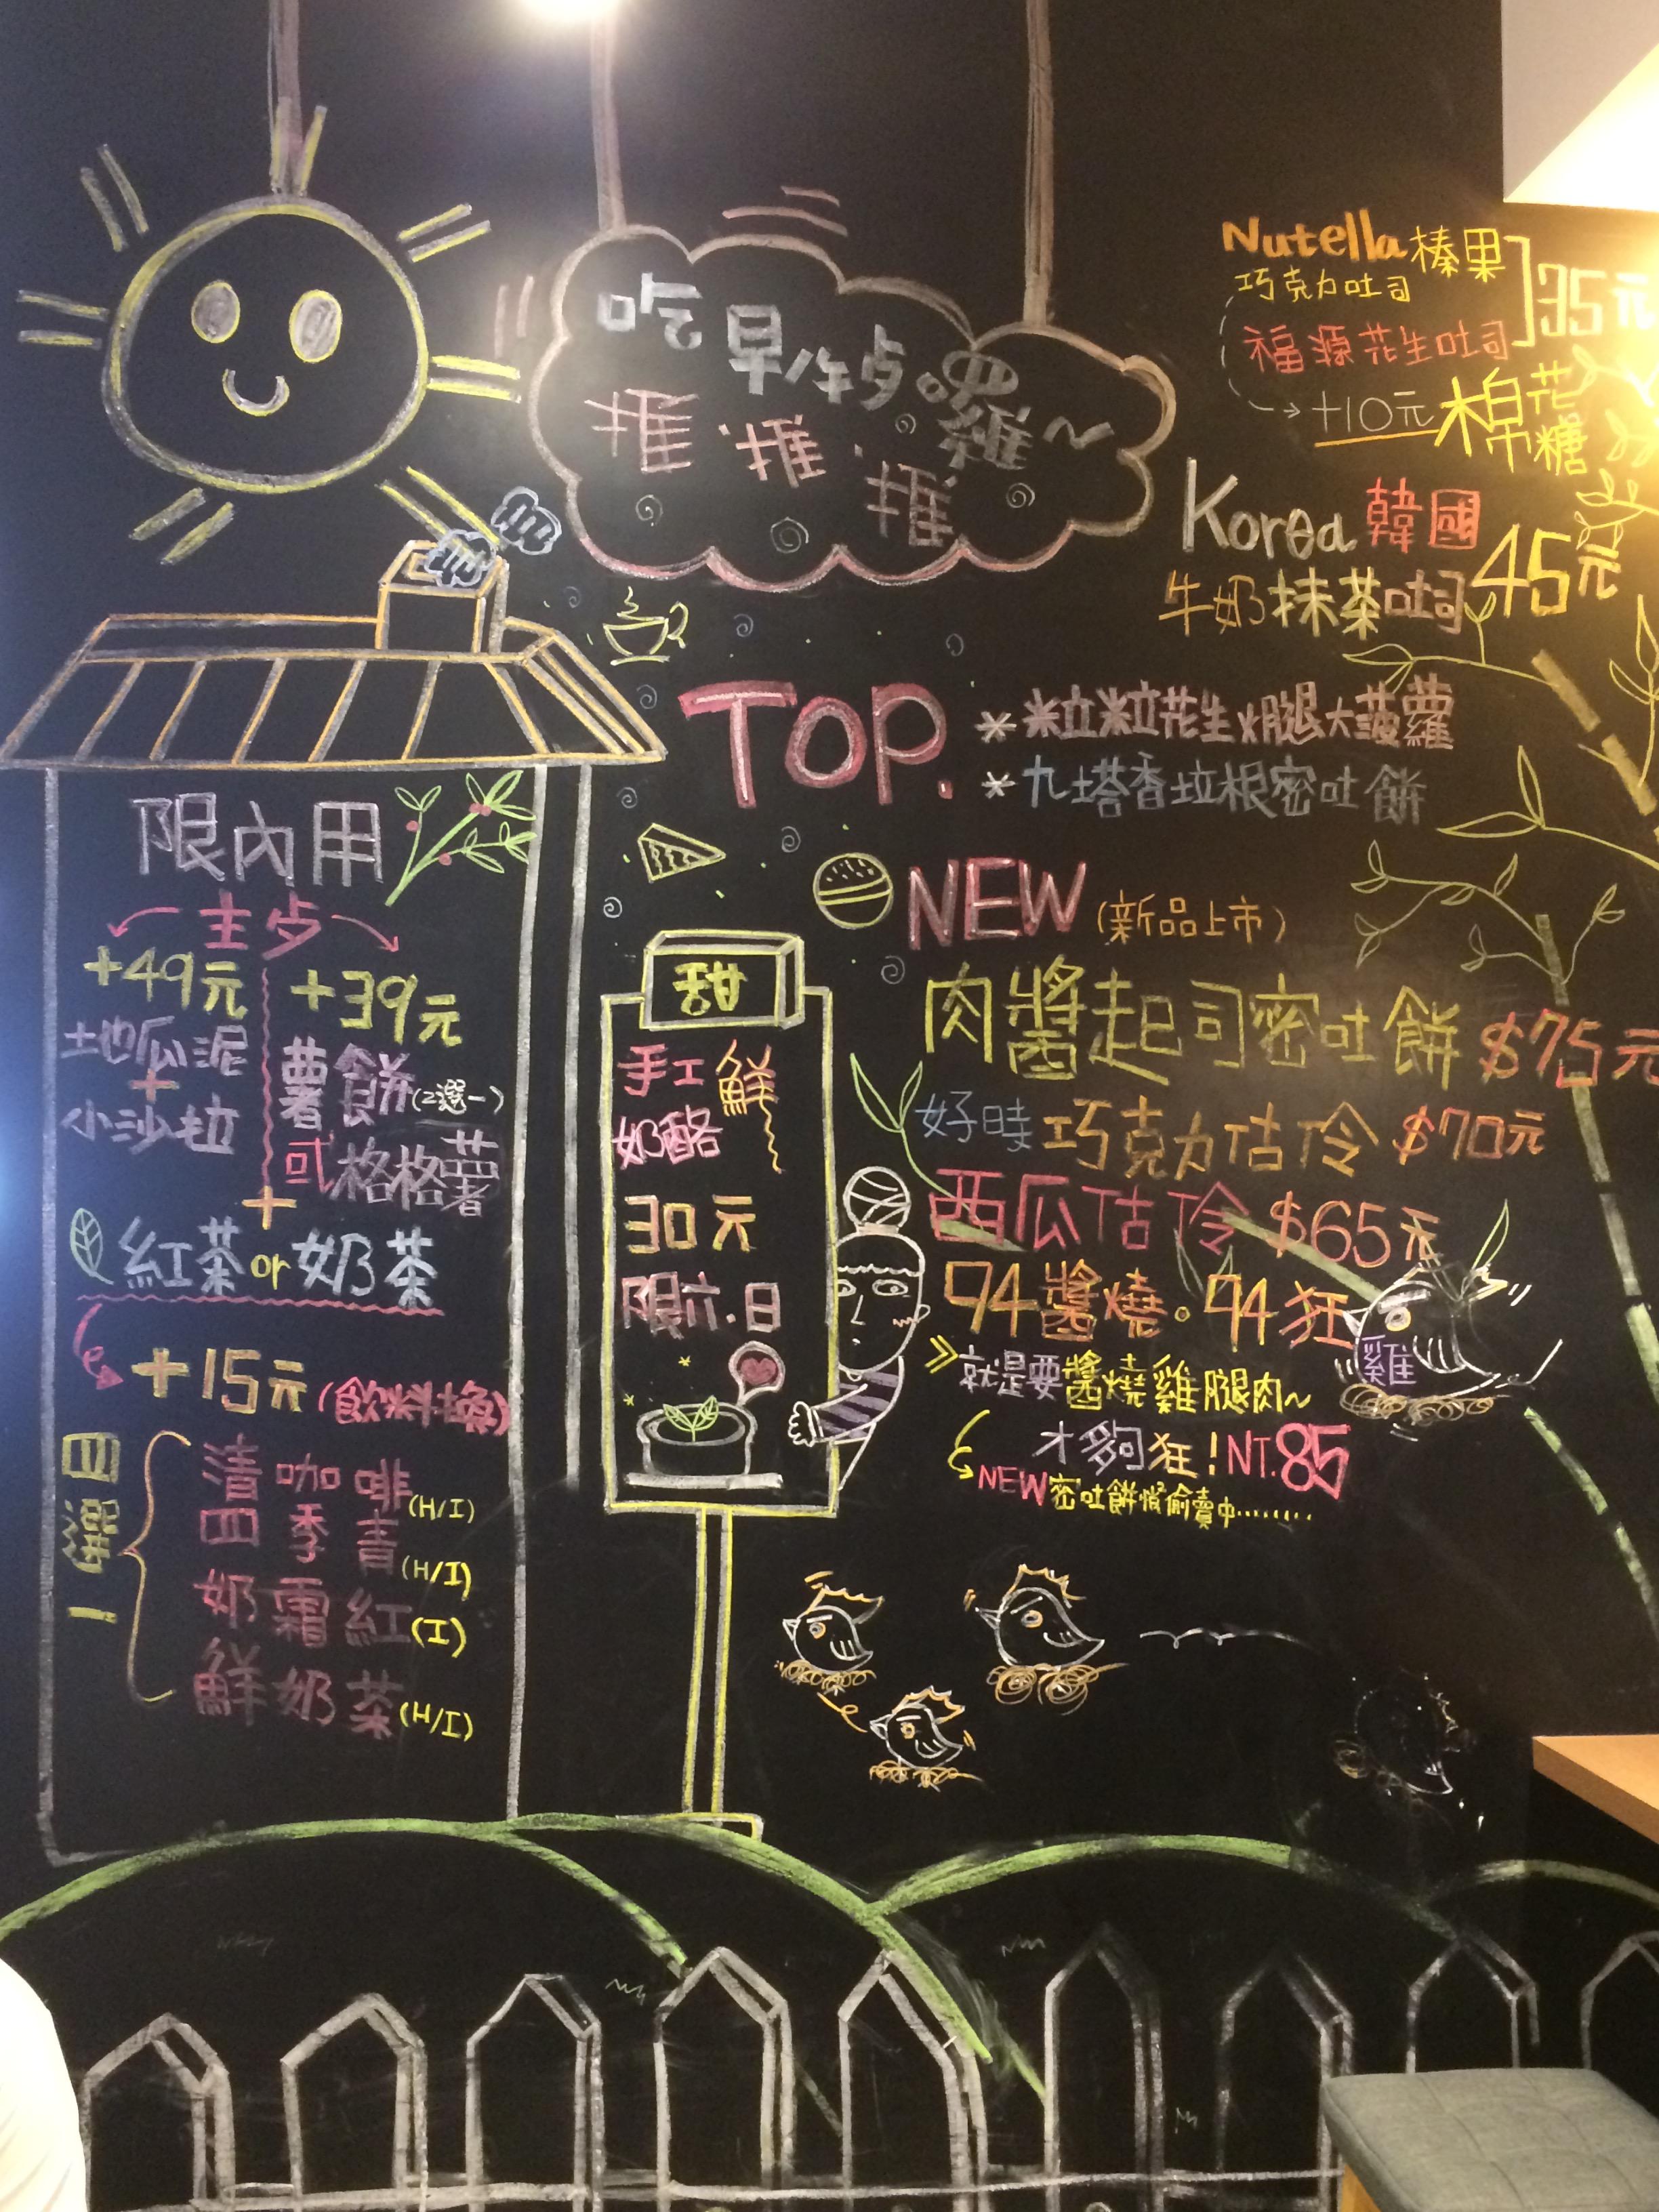 吃早午歺囉~
推.推.推
Nutella榛果
巧克力吐司
福源花生吐司
35元
+10元棉花糖
Korea韓國
牛奶抹茶吐司45元
TOP.
*粒粒花生火腿大菠蘿
*九塔香培根密吐餅
NEW(新品上市)
肉醬起司密吐餅$75元
好時巧克力估伶$70元
西瓜估伶$65元
94醬燒。94狂
雞
就是要醬燒雞腿肉~
才夠狂!NT.85
NEW密吐餅偷賣中........
甜
手工鮮
奶酪
30元
限六.日
限內用
主歺
+49元
土地瓜泥
+
小沙拉
+39元
薯餅(2選一)
或格格薯
+
紅茶or奶茶
+15元(飲料換)
四選一
清咖啡(H/I)
四季青(H/I)
奶霜紅(I)
鮮奶茶(H/I)